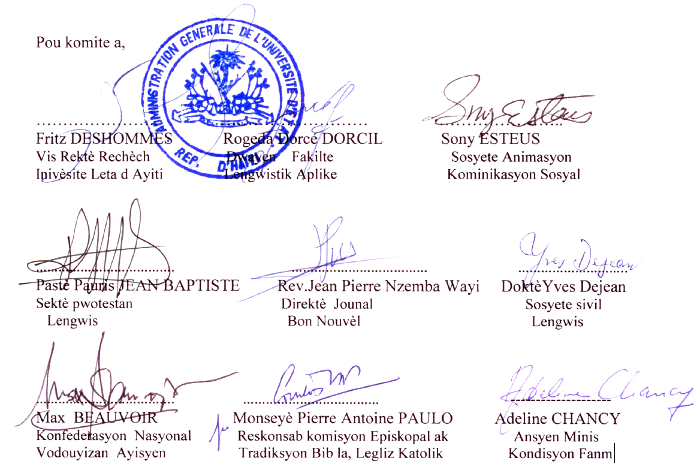 Pou komite a,
ADMINISTRATION GENERALE DE L'UNIVERSITE D'ETAT
REP. D'HAITI
Sony Esteus
Fritz DESHOMMES Rogeda Dorcé DORCIL Sony ESTEUS
Vis Rektè Rechèch Dwayen Fakilte Sosyete Animasyon
Inivèsite Leta d Ayiti Lengwistik Aplike Kominikasyon Sosyal
Yves Dejean
Pastè Pauris JEAN BAPTISTE Rev.Jean Pierre Nzemba Wayi DoktèYves Dejean
Sektè pwotestan Direktè Jounal Sosyete sivil
Lengwis Bon Nouvèl Lengwis
Adeline Chancy
Max BEAUVOIR Monseyè Pierre Antoine PAULO Adeline CHANCY
Konfederasyon Nasyonal Reskonsab komisyon Episkopal ak Ansyen Minis
Vodouyizan Ayisyen Tradiksyon Bib la, Legliz Katolik Kondisyon Fanm